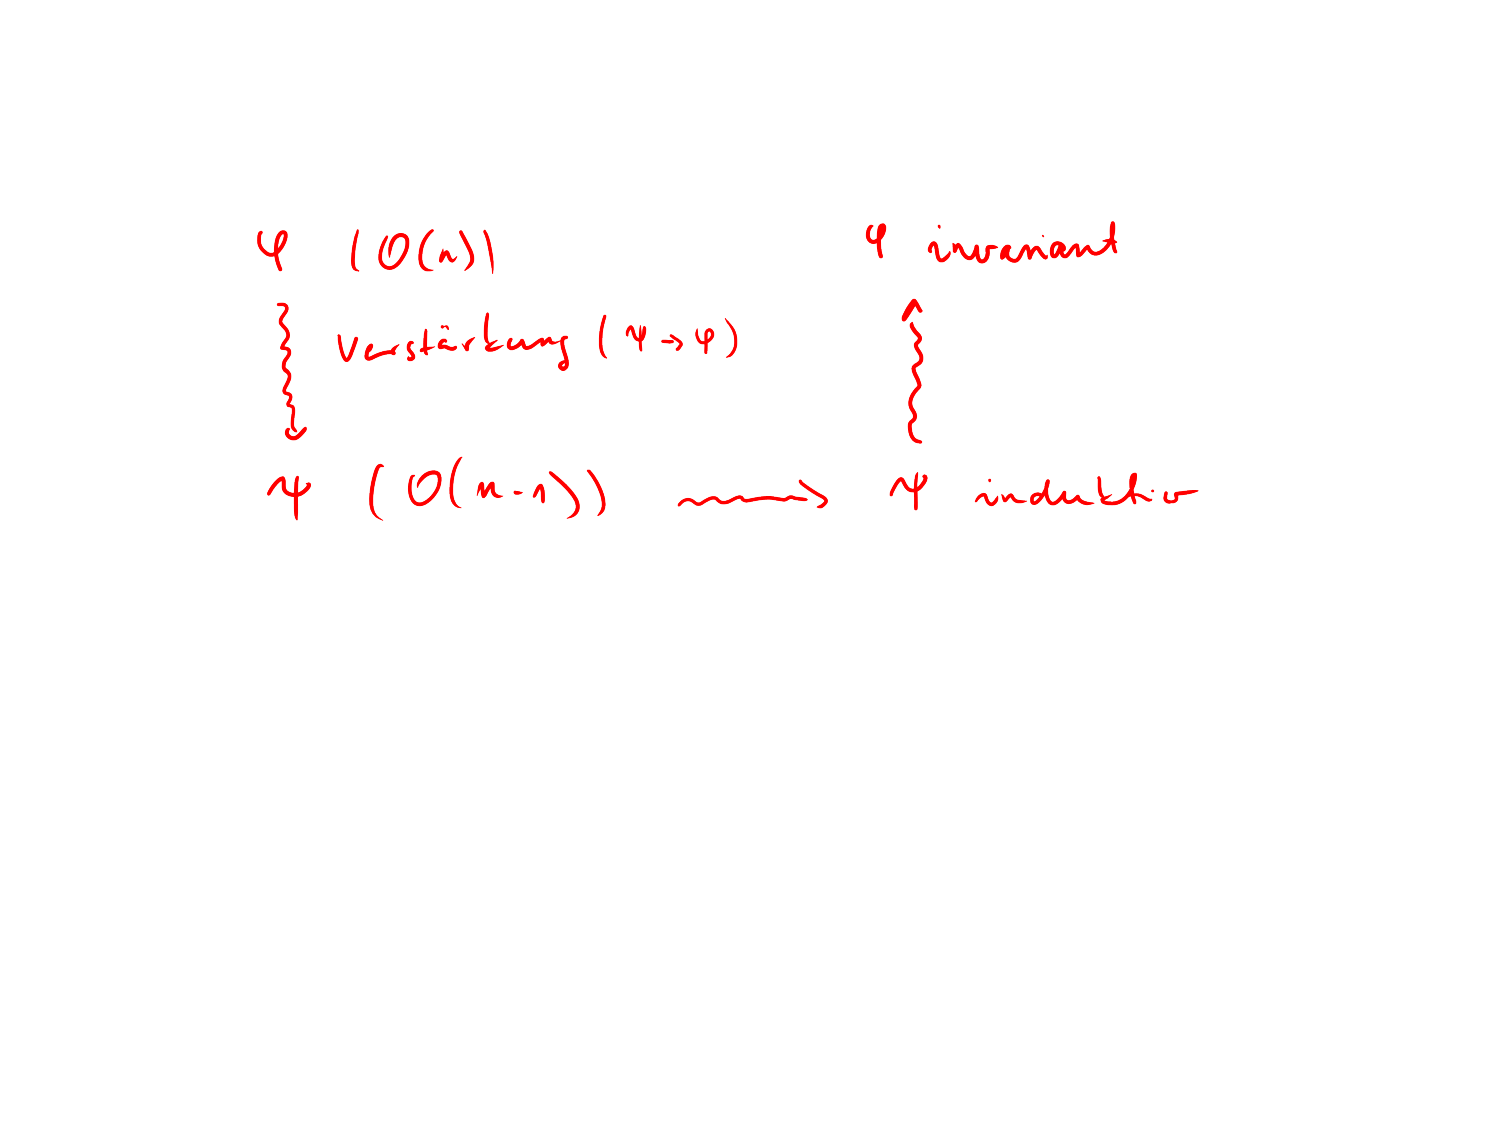 φ (O(n)) φ invariant
Verstärkung (ψ → φ)
ψ (O(n-1)) ⟿ ψ induktiv